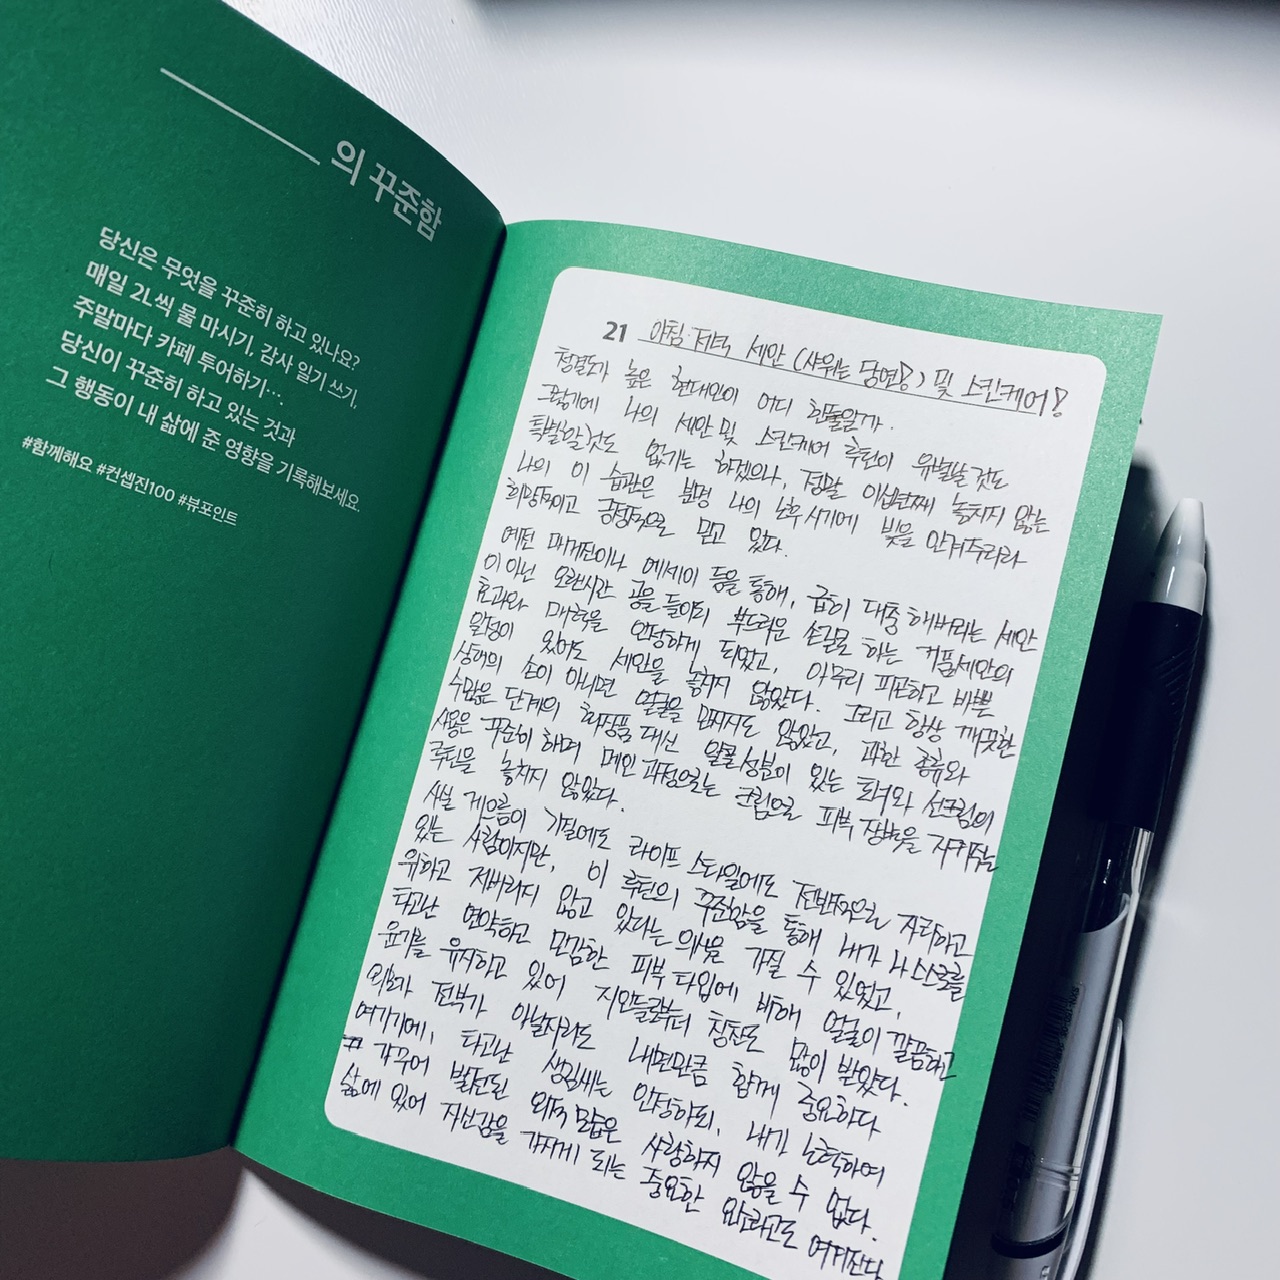 의 꾸준함
당신은 무엇을 꾸준히 하고 있나요?
매일 2L씩 물 마시기, 감사 일기 쓰기,
주말마다 카페 투어하기….
당신이 꾸준히 하고 있는 것과
그 행동이 내 삶에 준 영향을 기록해보세요.
#함께해요 #컨셉진100 #뷰포인트
21 아침·저녁 세안 (샤워는 당연!) 및 스킨케어!
청결도가 높은 현대인이 어디 한둘일까.
그렇기에 나의 세안 및 스킨케어 루틴이 유별날 것도
특별할 것도 없기는 하겠으나, 정말 이십년째 놓치지 않는
나의 이 습관은 분명 나의 노후 시기에 빛을 안겨주리라
희망적이고 긍정적으로 믿고 있다.
예전 매거진이나 에세이 등을 통해, 급히 대충 해버리는 세안
이 아닌 오랜시간 공을 들이되 부드러운 손길로 하는 거품세안의
효과와 매력을 인정하게 되었고, 아무리 피곤하고 바쁜
일정이 있어도 세안을 놓치지 않았다. 그리고 항상 깨끗한
상태의 손이 아니면 얼굴을 만지지도 않았고, 과한 종류와
수많은 단계의 화장품 대신 알콜성분이 있는 토너와 선크림의
사용은 꾸준히 하며 메인 과정으로는 크림으로 피부 장벽을 지켜주는
루틴을 놓치지 않았다.
사실 게으름이 기질에도 라이프 스타일에도 전반적으로 자리하고
있는 사람이지만, 이 루틴의 꾸준함을 통해 내가 나 스스로를
위하고 저버리지 않고 있다는 의식을 가질 수 있었고,
타고난 연약하고 민감한 피부 타입에 비해 얼굴이 깔끔하고
윤기를 유지하고 있어 지인들로부터 칭찬도 많이 받았다.
외모가 전부가 아닐지라도 내면만큼 함께 중요하다
여기기에, 타고난 생김새는 인정하되, 내가 노력하여
가꾸어 발전된 외적 모습은 사랑하지 않을 수 없다.
삶에 있어 자신감을 가지게 되는 중요한 요소라고도 여겨진다